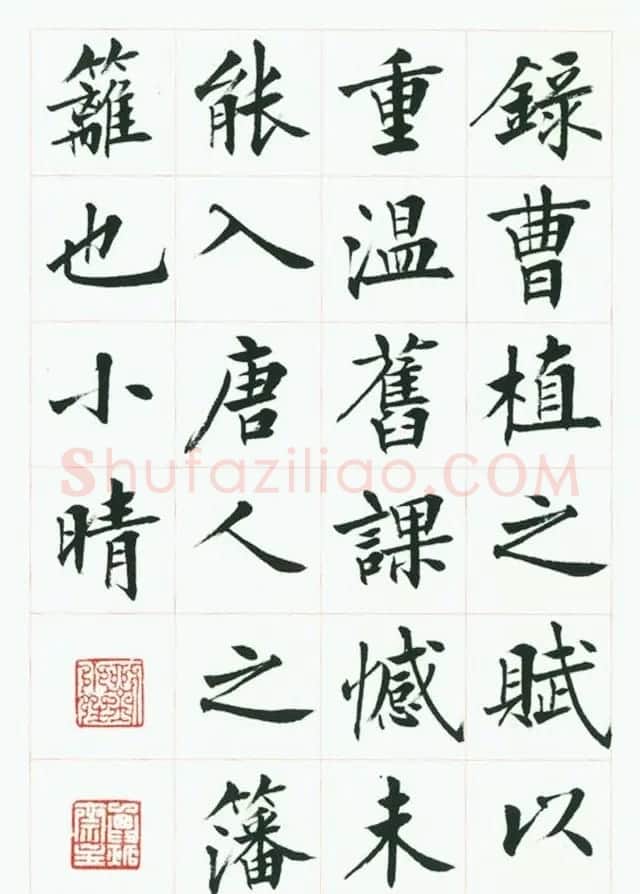 錄曹植之賦以
重温舊課憾未
能入唐人之藩
籬也小晴
Shufaziliao.COM